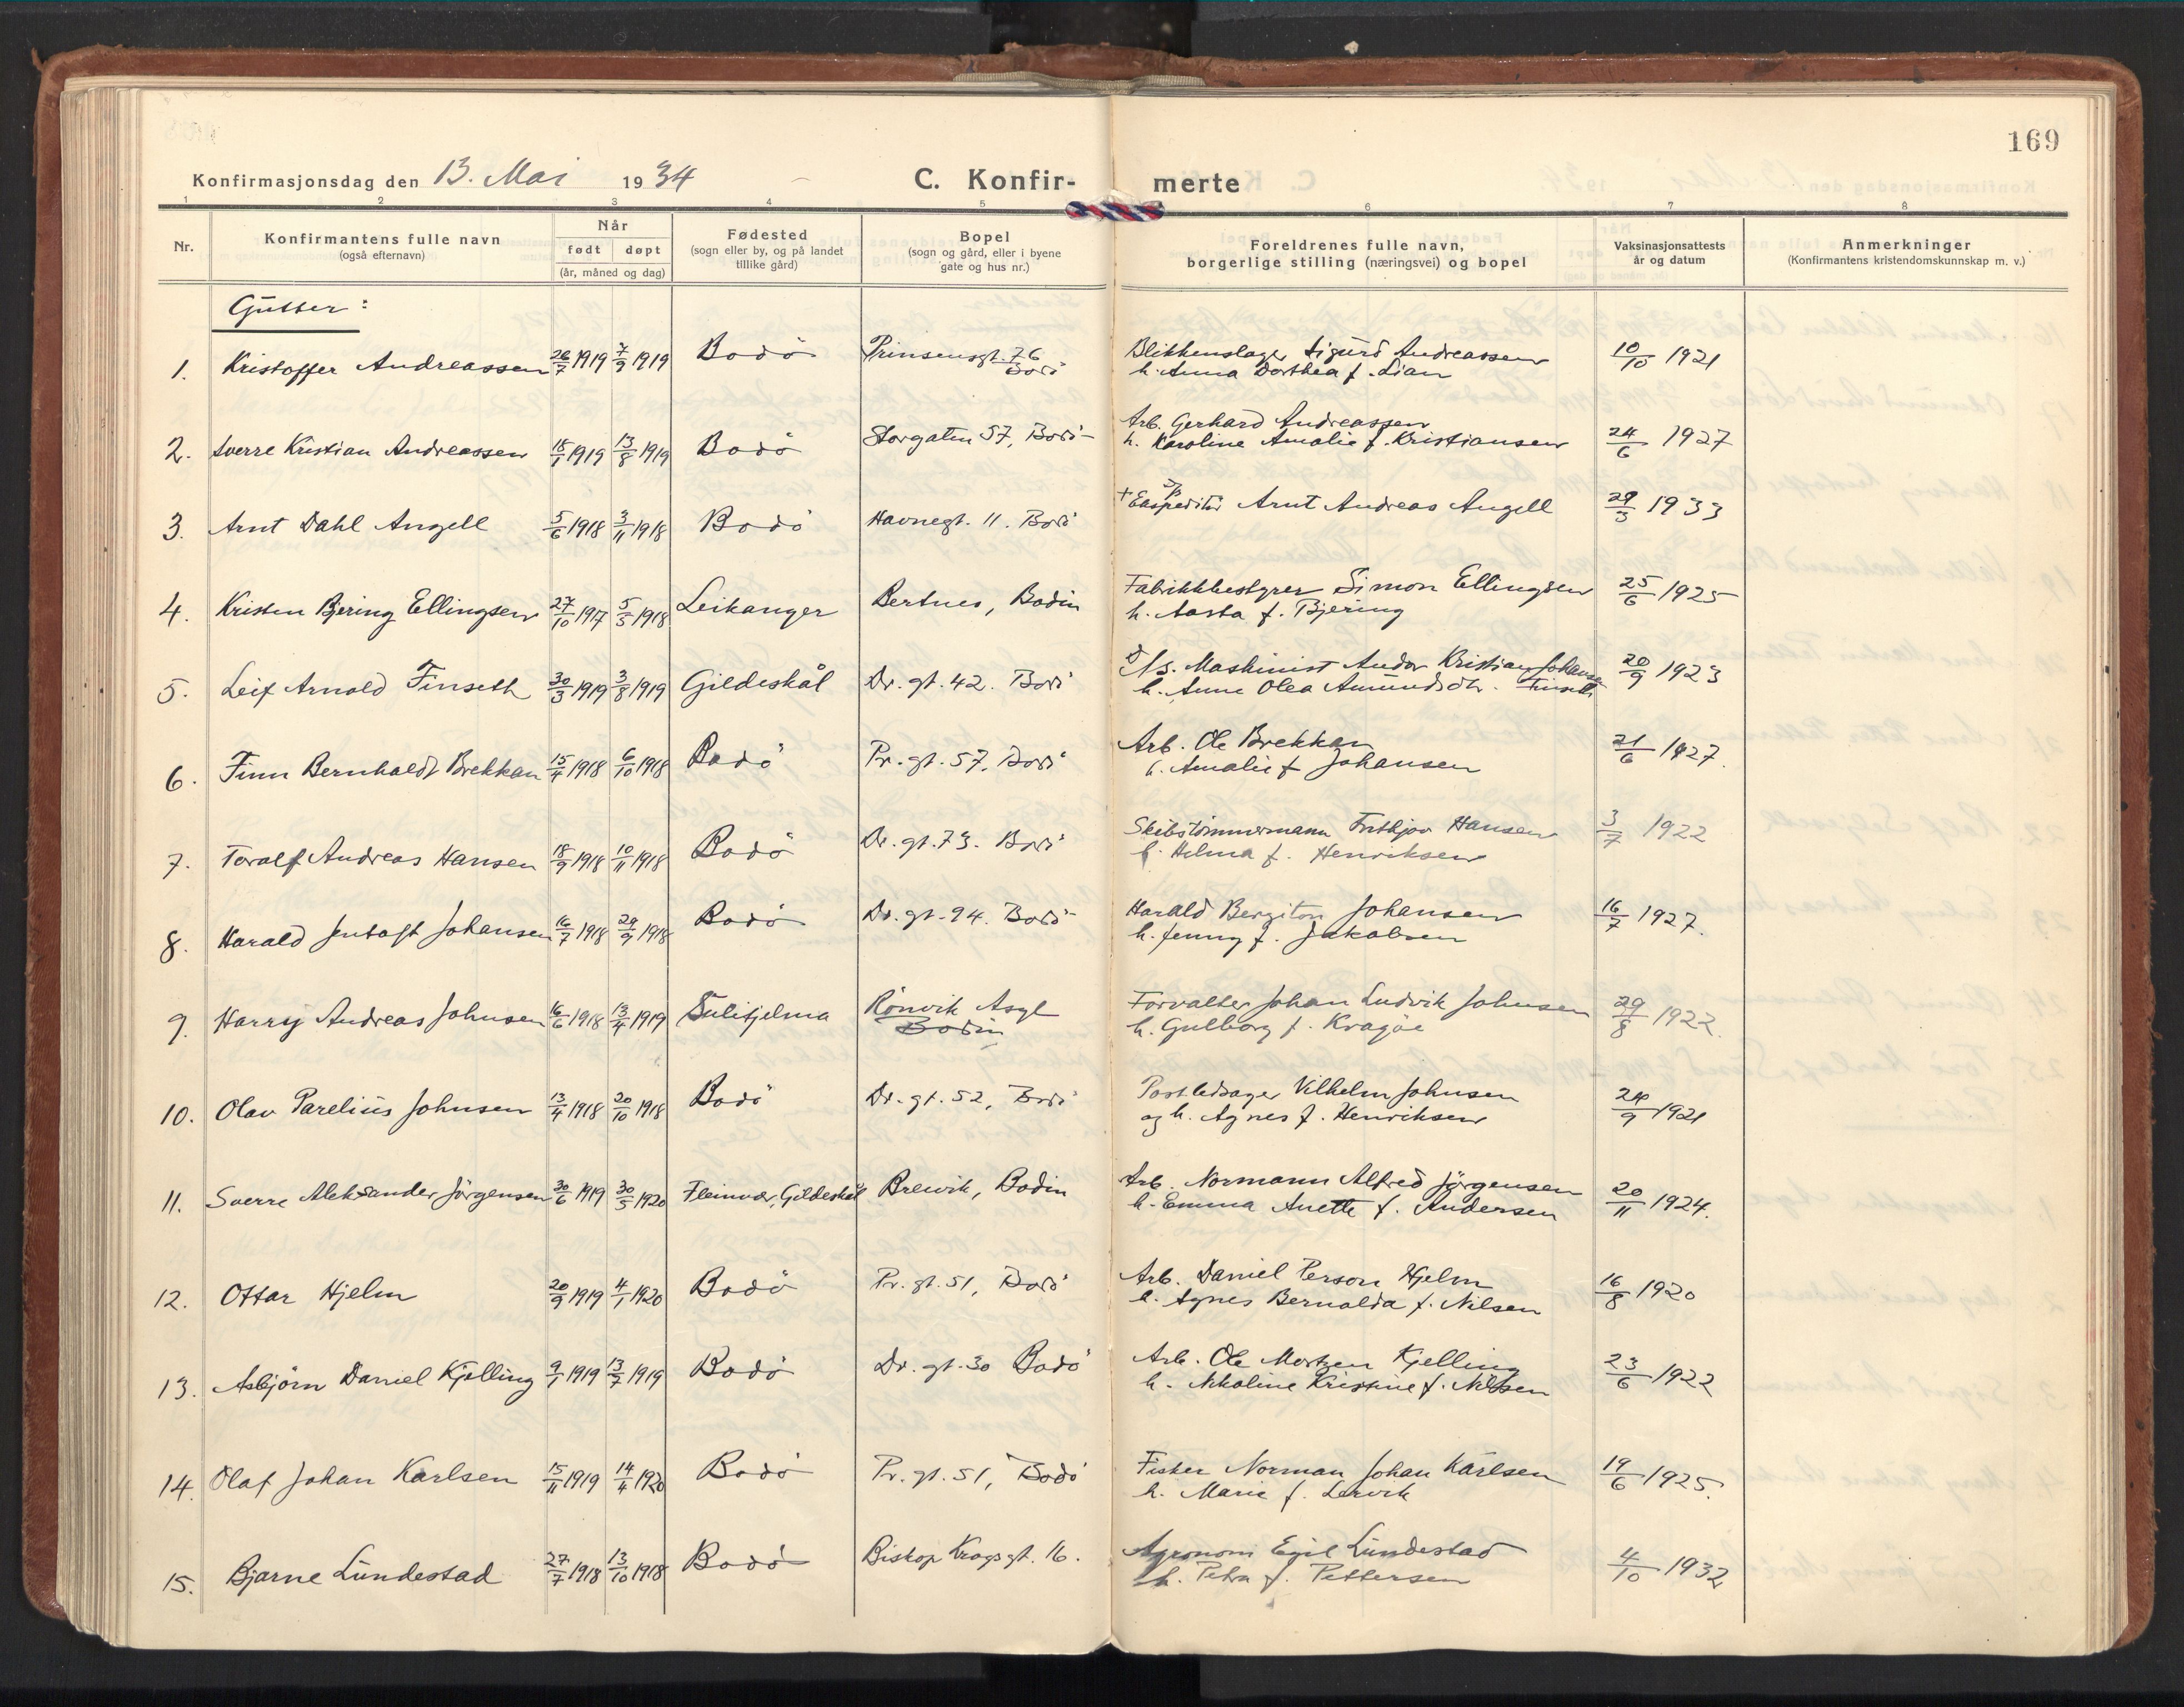 169
Konfirmasjonsdag den 13. Mai 1934
C. Konfir- merte
1 2 3 4 5 6 7 8
Nr.
Konfirmantens fulle navn
(også efternavn)
Når
født døpt
(år, måned og dag)
Fødested
(sogn eller by, og på landet
tillike gård)
Bopel
(sogn og gård, eller i byene
gate og hus nr.)
Foreldrenes fulle navn,
borgerlige stilling (næringsvei) og bopel
Vaksinasjonsattests
år og datum
Anmerkninger
(Konfirmantens kristendomskunnskap m. v.)
Gutter:
1. Kristoffer Andreassen 26/7 1919 7/9 1919 Bodö Prinsensgt. 76 Bodö Blikkenslager Sigurd Andreassen 10/10 1921
h. Anna Dorthea f. Lian
2. Sverre Kristian Andreassen 18/1 1919 13/8 1919 Bodö Storgaten 57, Bodö Arb. Gerhard Andreassen 24/6 1927
h. Karoline Amalie f. Kristiansen
3. Arnt Dahl Angell 5/6 1918 3/11 1918 Bodö Havnegt. 11. Bodö + Ekspeditör Arnt Andreas Angell 29/3 1933
4. Kristen Bjering Ellingsen 27/10 1917 5/5 1918 Leikanger Bertnes, Bodin Fabrikkbestyrer Simon Ellingsen 25/6 1925
h. Aasta f. Bjering
5. Leif Arnold Finseth 30/3 1919 3/8 1919 Gildeskål Dr. gt. 42. Bodö Maskinist Andor Kristian Johansen 20/9 1923
h. Anne Olea Amundsdtr. Finseth
6. Finn Bernhaldt Brekkan 15/4 1918 6/10 1918 Bodö Pr. gt. 57. Bodö Arb. Ole Brekkan 21/6 1927.
h. Amalie f Johansen
7. Toralf Andreas Hansen 18/9 1918 10/11 1918 Bodö Dr. gt. 73. Bodö Skibstömmermann Fritkjov Hansen 3/7 1922
h. Helma f. Henriksen
8. Harald Jentoft Johansen 16/7 1918 29/9 1918 Bodö Dr. gt. 94. Bodö Harald Bergiton Johansen 16/7 1927.
h. Jenny f. Jakobsen
9. Harry Andreas Johnsen 16/6 1918 13/4 1919 Sulitjelma Rönvik Asyl Bodin Forvalter Johan Ludvik Johnsen 29/8 1922.
h. Gulborg f. Kragöe
10. Olav Parelius Johnsen 13/4 1918 20/10 1918 Bodö Dr. gt. 52, Bodö Postledsager Vilhelm Johnsen 24/9 1921
og h. Agnes f. Henriksen
11. Sverre Aleksander Jörgensen 30/6 1919 30/5 1920 Fleinvær, Gildeskål Breivik, Bodin Arb. Normann Alfred Jörgensen 20/11 1924.
h. Emma Anette f. Andersen
12. Ottar Hjelm 20/9 1919 4/1 1920 Bodö Pr. gt. 51, Bodö Arb. Daniel Person Hjelm 16/8 1920
h. Agnes Bernalda f. Nilsen
13. Asbjörn Daniel Kjelling 9/1 1919 13/7 1919 Bodö Dr. gt. 30 Bodö Arb. Ole Mortzen Kjelling 23/6 1922
h. Nikoline Kristine f. Nilssen
14. Olaf Johan Karlsen 15/11 1919 14/4 1920 Bodö Pr. gt. 51, Bodö Fisker Norman Johan Karlsen 19/6 1925.
h. Marie f. Lervik
15. Bjarne Lundestad 27/7 1918 13/10 1918 Bodö Biskop Krogsgt. 16. Agronom Egil Lundestad 4/10 1932
h. Petra f. Pettersen